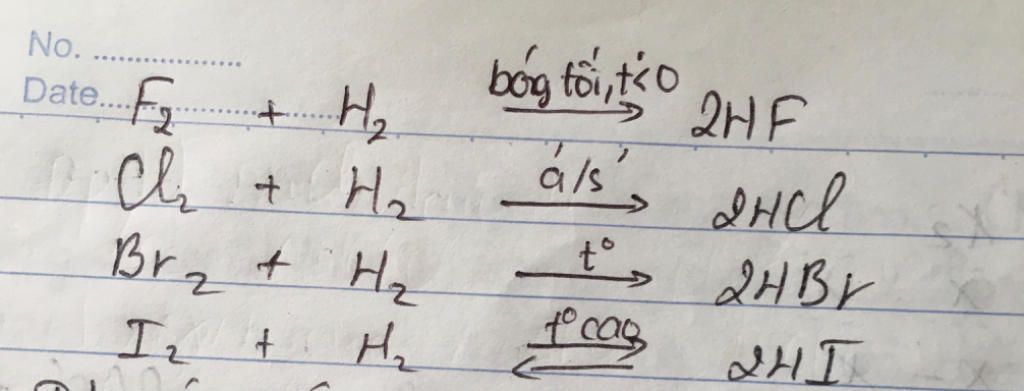 No. ....................
Date....
F₂ + H₂ bóg tối, t°<0 → 2HF
Cl₂ + H₂ á/s' → 2HCl
Br₂ + H₂ t° → 2HBr
I₂ + H₂ t° cao ⇌ 2HI